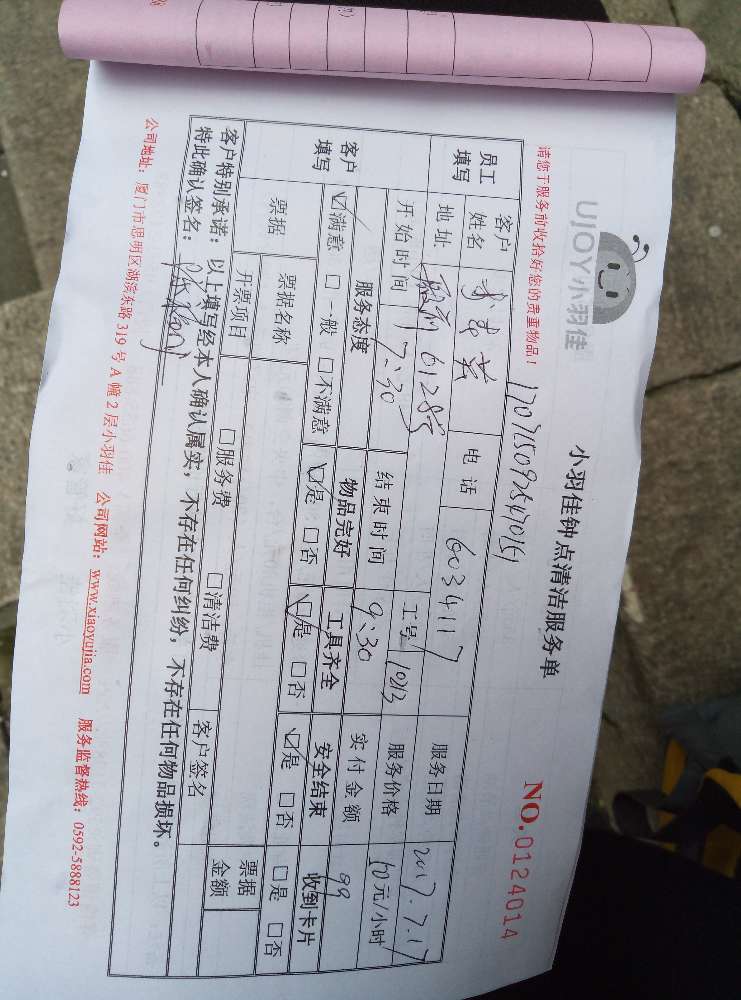 UJOY小羽佳
小羽佳钟点清洁服务单
NO.0124014
请您于服务前收拾好您的贵重物品!
员工填写 客户姓名 电话 6034117 服务日期 2017.7.17
地址 61285 工号 1013 服务价格 60元/小时
客户填写 开始时间 17:30 结束时间 9:30 实付金额 99
服务态度 物品完好 工具齐全 安全结束 收到卡片
☑满意 □一般 □不满意 ☑是 □否 ☑是 □否 ☑是 □否 □是 □否
票据 票据名称 票据金额
开票项目 □服务费 □清洁费 客户签名
客户特别承诺:以上填写经本人确认属实,不存在任何纠纷,不存在任何物品损坏。
特此确认签名:
公司地址:厦门市思明区湖滨东路 319 号 A 幢 2 层小羽佳 公司网站:www.xiaoyujia.com 服务监督热线:0592-5888123